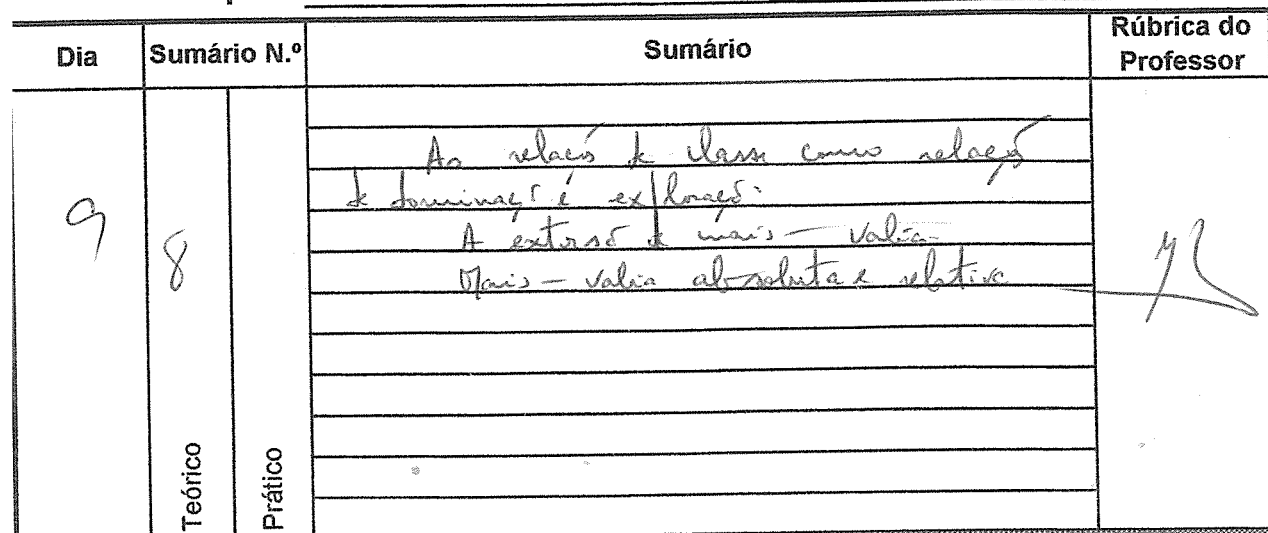 Dia Sumário N.º Sumário Rúbrica do Professor
9 8
As relações de classe como relações
de dominação e exploração.
A extorsão de mais-valia
Mais-valia absoluta e relativa
Teórico Prático